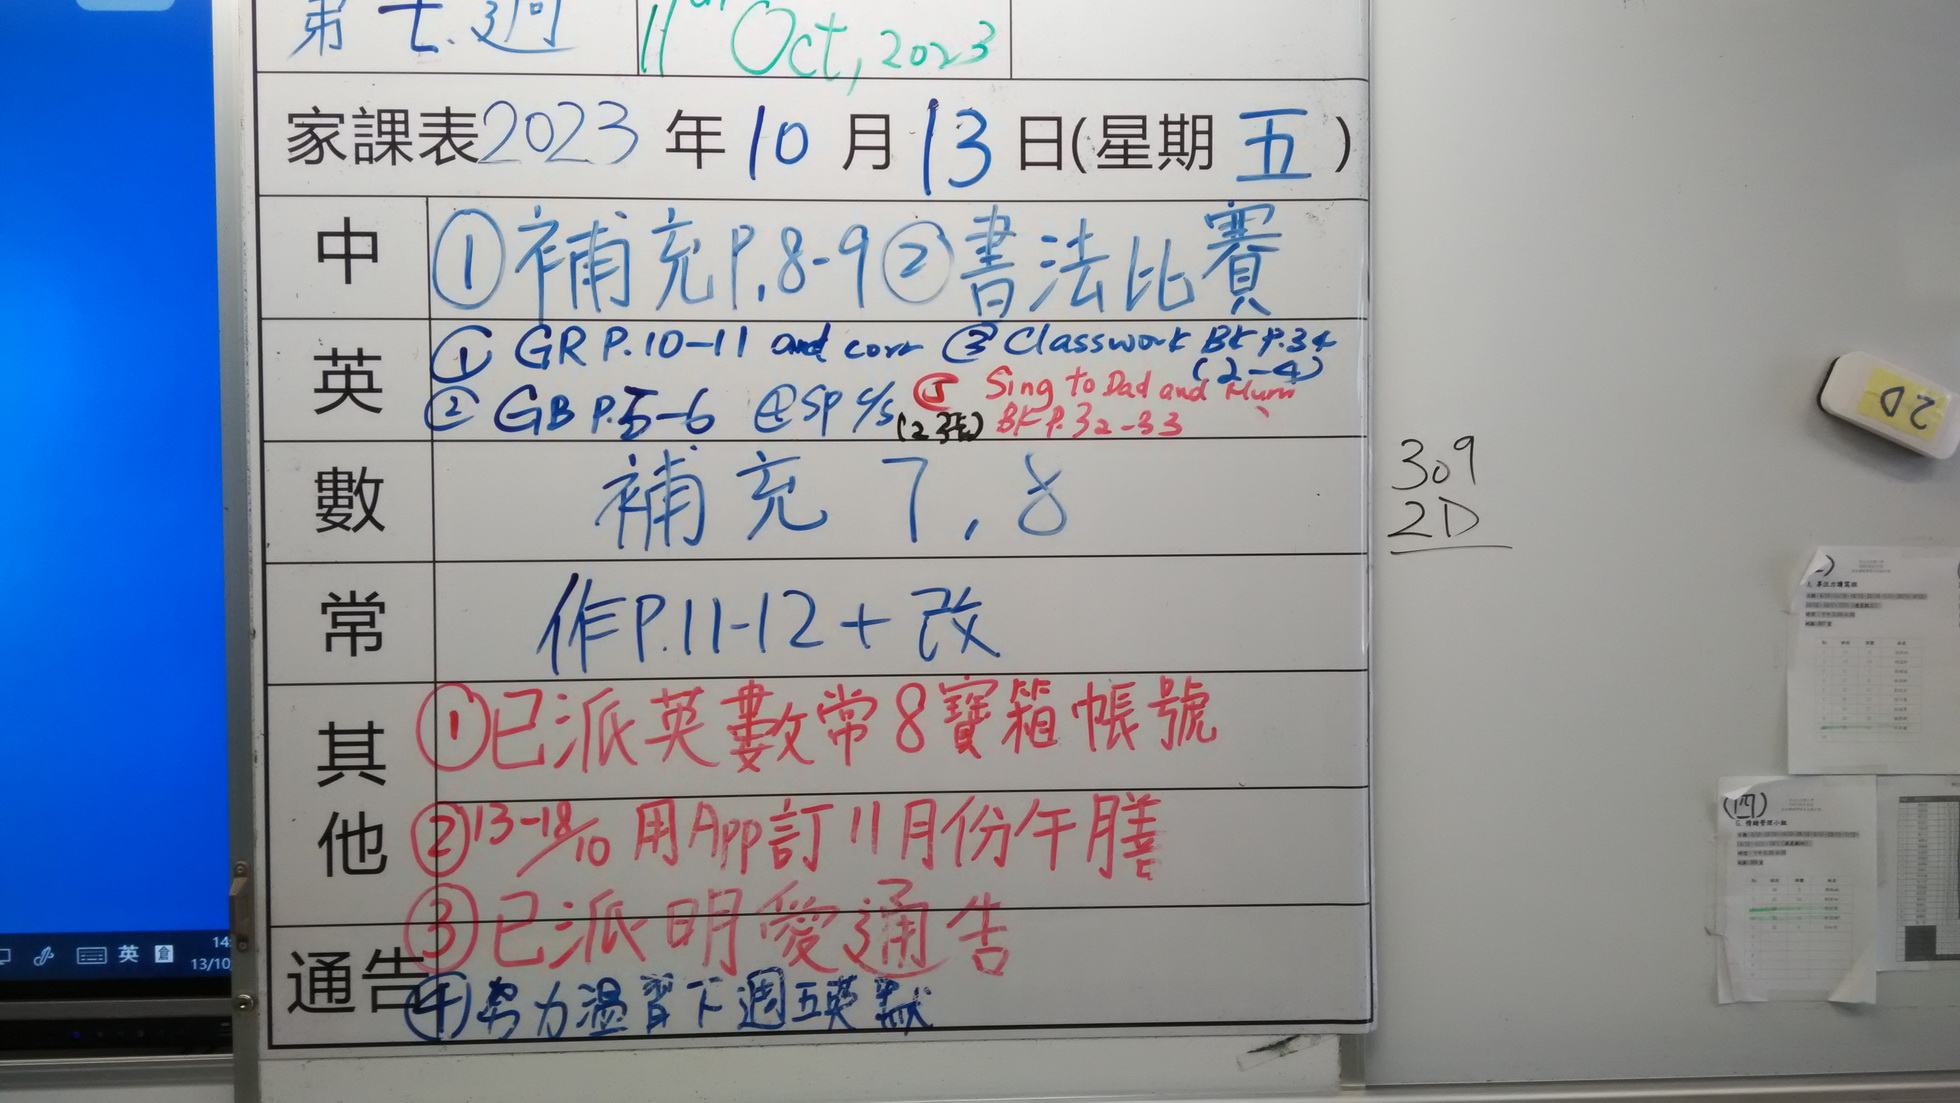 第七週 11th Oct, 2023
家課表2023年10月13日(星期五)
中 ①補充P.8-9②書法比賽
英 ① GR P.10-11 and corr ③ Classwork BK P.34 (2-4)
② GB P.5-6 ④ SP c/s (2張) ⑤ Sing to Dad and Mum BK P.32-33
數 補充 7, 8
常 作P.11-12+改
其他 ①已派英數常8寶箱帳號
②13-18/10 用App訂11月份午膳
③已派明愛通告
通告 ④努力溫習下週五英默
309
2D
2D
(四)
英
倉
14:
13/10